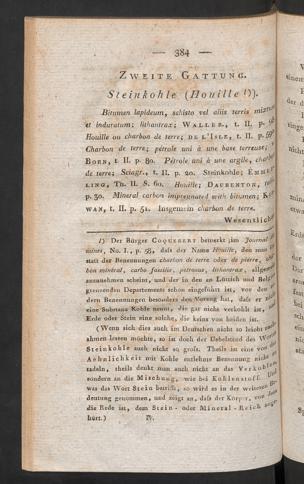 — 384 —
Zweite Gattung.
Steinkohle (Houille 1)).
Bitumen lapideum, schisto vel aliis terris mixtum
et induratum; lithantrax; Waller. t. II. p. 98.
Houille ou charbon de terre; de l'Isle, t. II. p. 590.
Charbon de terre; pétrole uni à une base terreuse;
Born, t. II. p. 80. Pétrole uni à une argile, charbon
de terre; Sciagr., t. II. p. 20. Steinkohle; Emmer-
ling, Th. II. S. 60. Houille; Daubenton,
p. 30. Mineral carbon impregnated with bitumen; Kir-
wan, t. II. p. 51. Insgemein charbon de terre.
Wesentlicher
1) Der Bürger Coquebert bemerkt im Journal
mines, No. I., p. 55, daß der Name Houille, den man
statt der Benennungen charbon de terre oder de pierre,
bon minéral, carbo fossilis, petreus, lithantrax, allgemein
anzunehmen scheint, und der in den an Lüttich und
grenzenden Departements schon eingeführt ist, vor den
dern Benennungen besonders den Vorzug hat, daß er nicht
eine Substanz Kohle nennt, die gar nicht verkohlt ist,
Erde oder Stein eine solche, die keins von beiden ist.
(Wenn sich dies auch im Deutschen nicht so leicht nach-
ahmen lassen möchte, so ist doch der Uebelstand des Worts
Steinkohle auch nicht so groß. Theils ist eine von der
Aehnlichkeit mit Kohle entlehnte Benennung nicht zu
tadeln, theils denkt man auch nicht an das Verkohlen,
sondern an die Mischung, wie bei Kohlenstoff. Und
was das Wort Stein betrifft, so wird es in der weitern Be-
deutung genommen, und zeigt an, daß der Körper, von dem
die Rede ist, dem Stein- oder Mineral-Reich ange-
hört.)